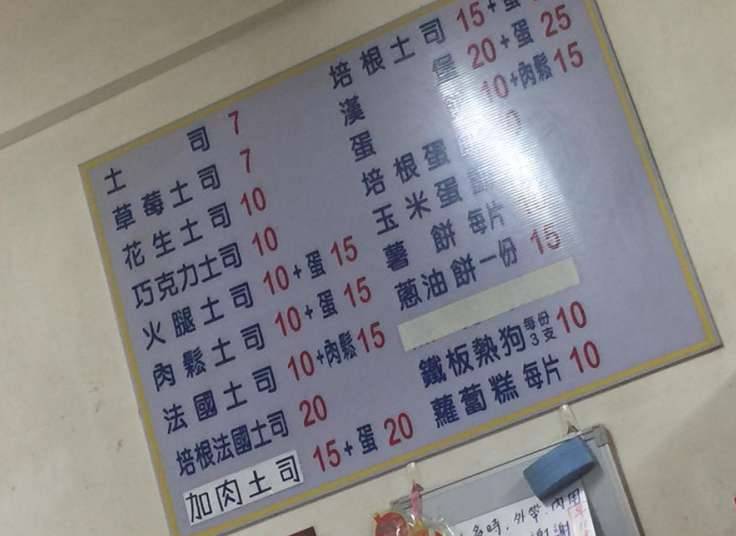 土司 7
草莓土司 7
花生土司 10
巧克力土司 10
火腿土司 10+蛋 15
肉鬆土司 10+蛋 15
法國土司 10+肉鬆15
培根法國土司 20
加肉土司 15+蛋 20
培根土司 15+蛋
漢堡 20+蛋 25
蛋 10+肉鬆15
培根蛋
玉米蛋
薯餅 每片
蔥油餅一份 15
鐵板熱狗每份3支10
蘿蔔糕每片 10
時.外帶.內用
謝謝